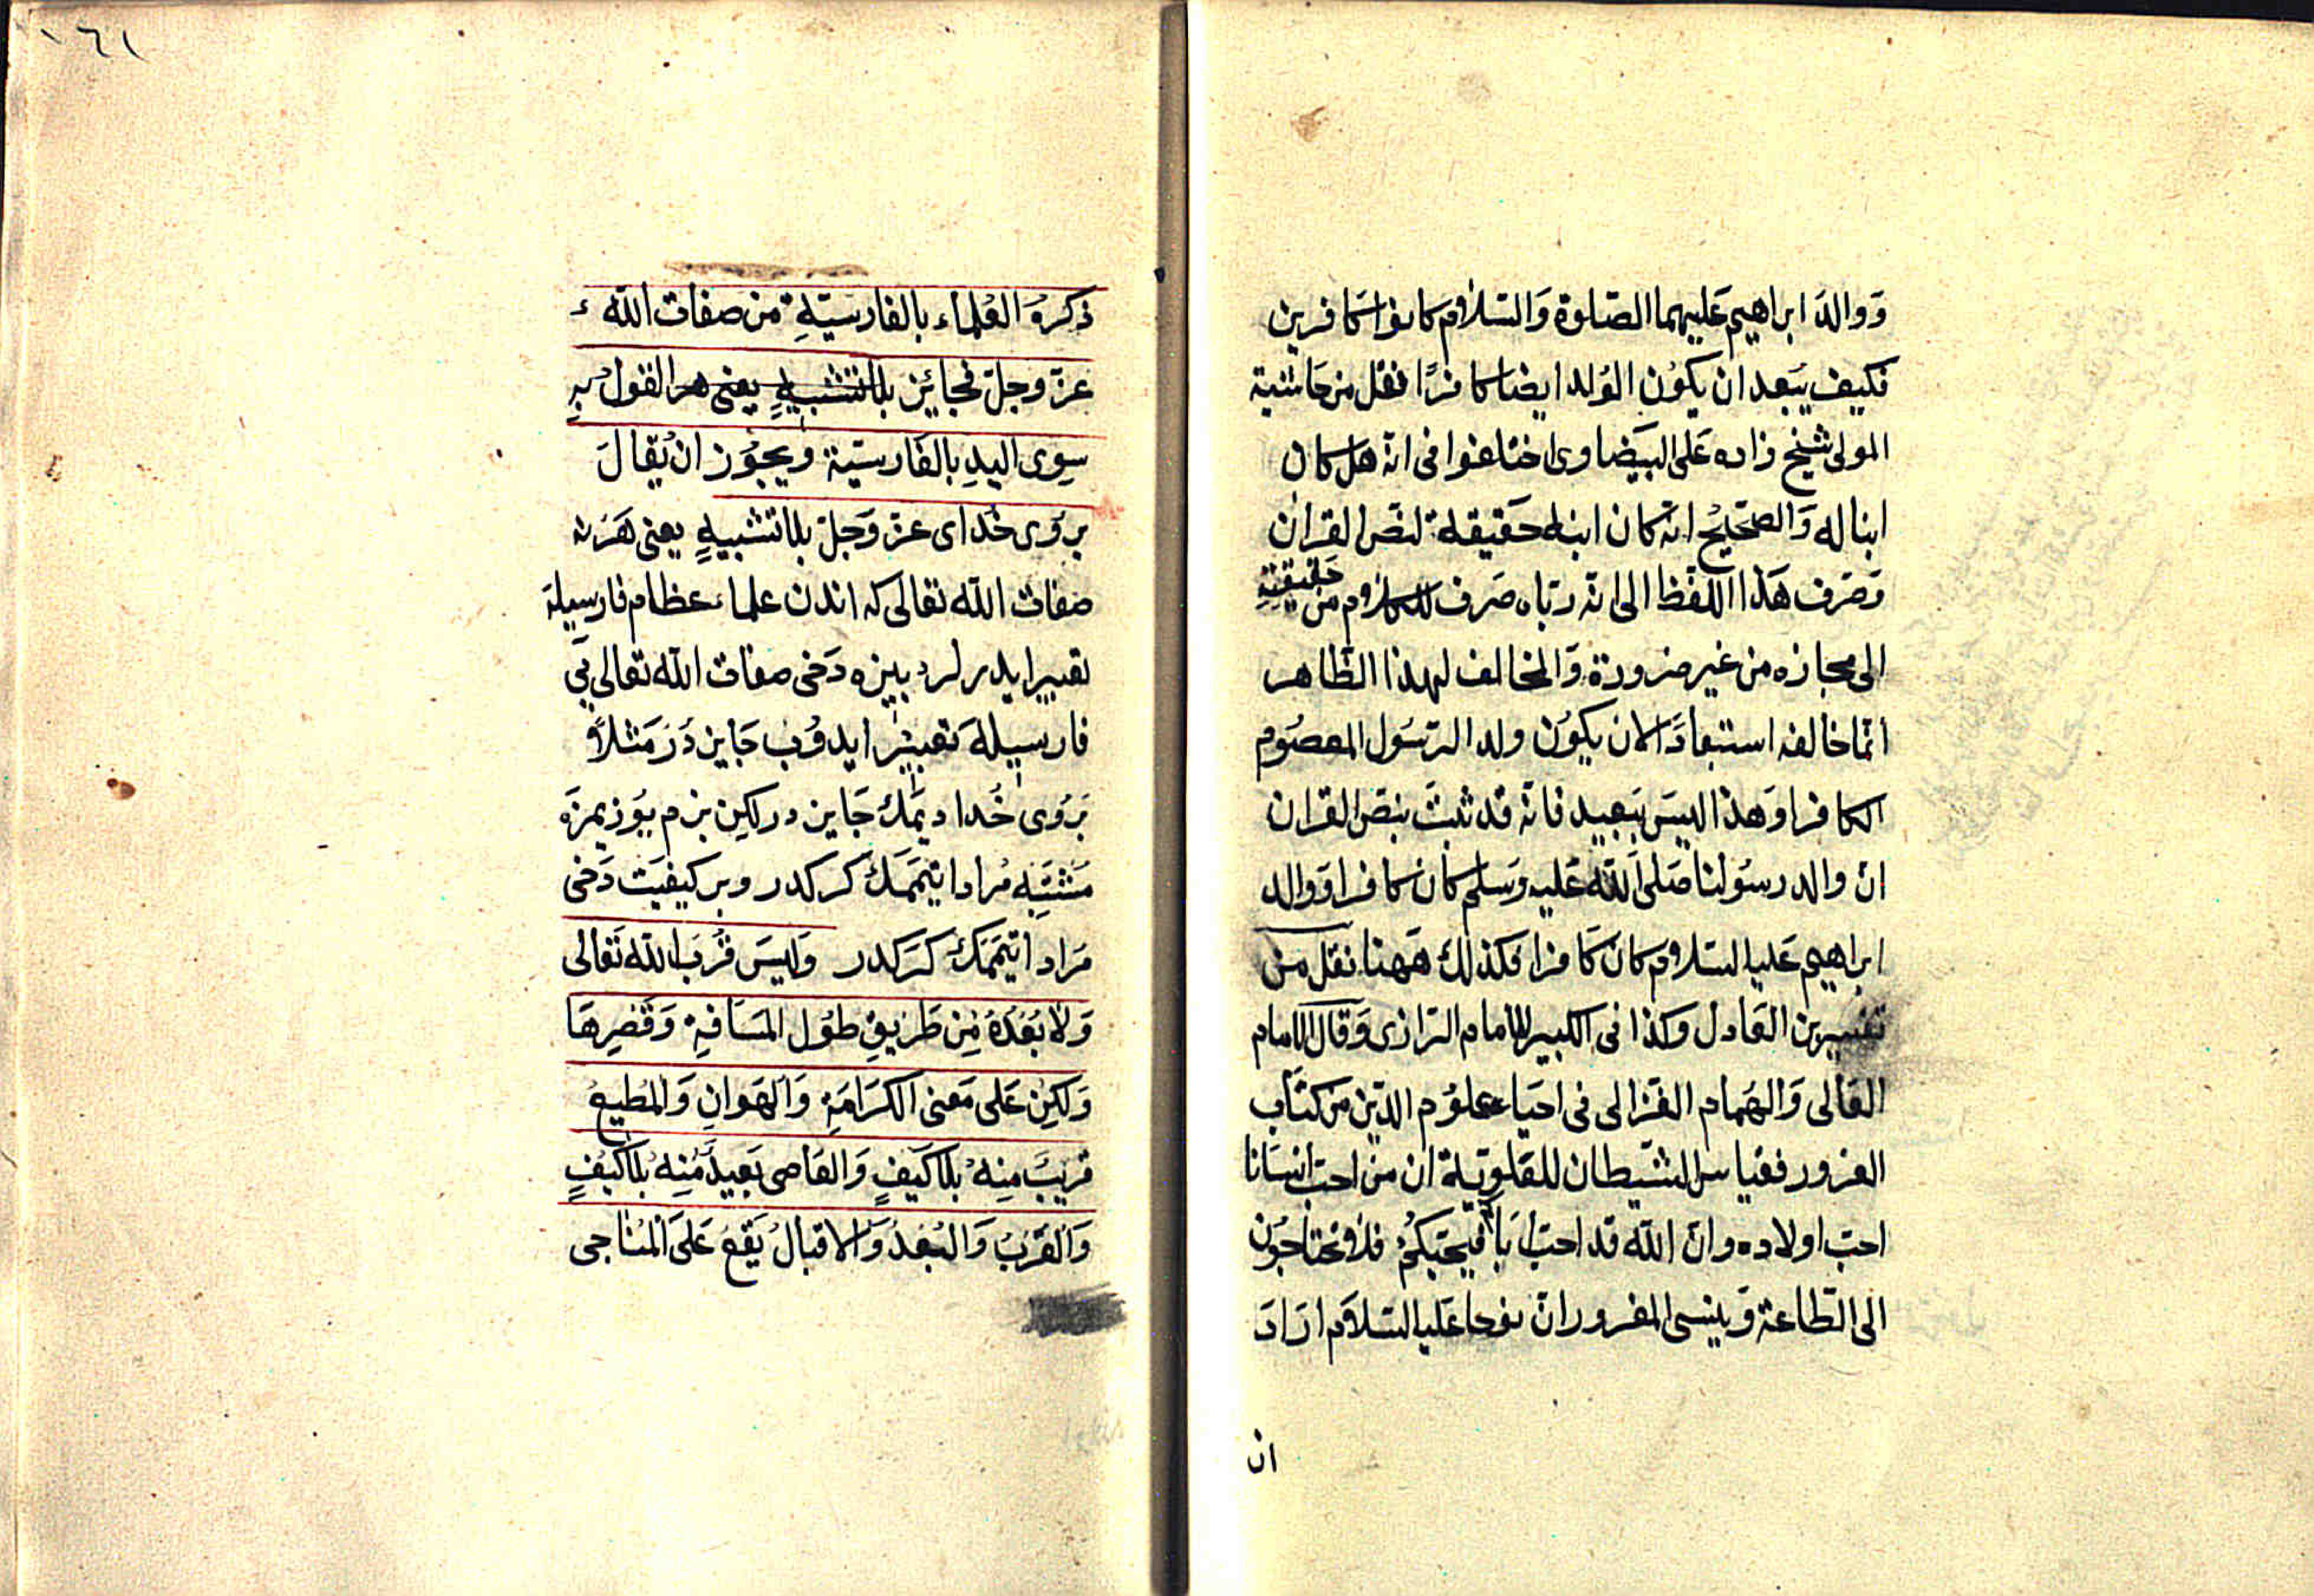 ووالد ابراهيم عليهما الصلوة والسلام كانوا كافرين
فكيف يبعد ان يكون الولد ايضا كافرًا نقل من حاشية
المولى شيخ زاده على البيضاوى اختلفوا فى انه هل كان
ابنا له والصحيح انه كان ابنه حقيقة لنص القران
وصرف هذا اللفظ الى انه رباه صرف للكلام من حقيقته
الى مجازه من غير ضرورة والمخالف لهذا الظاهر
انما خالفه استبعادًا لان يكون ولد الرسول المعصوم
الكافرا وهذا ليس ببعيد فانه قد ثبت بنص القران
ان والد رسولنا صلى الله عليه وسلم كان كافرا ووالد
ابراهيم عليه السلام كان كافرا فكذلك ههنا نقل من
تفسير بن العادل وكذا فى الكبير للامام الرازى وقال الامام
العالى والهمام الغزالى فى احياء علوم الدين من كتاب
الغرور فقياس الشيطان للعلوية ان من احب انسانا
احب اولاده وان الله قد احب اباكم فيحبكم فلا تحتاجون
الى الطاعة وينسى المغرور ان نوحا عليه السلام اراد
ان
١٦١
ذكرهُ العُلماء بالفارسيّةِ من صفات الله
عزّ وجلّ فجائزٌ بلا تشبيهٍ يعنى القولُ بهِ
سِوى اليدِ بالفارسيّة ويجوز ان يُقالَ
بروى خُداى عزّ وَجلّ بلا تشبيهٍ يعنى هَر نه
صفات الله تعالى كه اندن علماء عظام فارسيله
تعبير ايدرلر بيزه دَخى صفات الله تعالى يى
فارسيله تعبير ايدوُب جَايز دُر مَثلاً
بَرُوى خُدا ديمَك جَايز در لكِن بزم يوزيمزَه
مشبّه مُراد ايتممَك كركدر وبر كيفيَت دَخى
مَراد ايتممَك كَركدر وَليسَ قُربُ الله تعَالى
وَلا بُعْدُهُ مِن طَريقِ طُول المسَافةِ وَقصرِهَا
وَلكِن عَلى مَعنى الكرَامَةِ وَالهَوانِ وَالمُطيعُ
قريبٌ مِنهُ بلا كَيفٍ وَالعَاصى بَعيدٌ مُنهِ بلا كيفٍ
وَالقربُ وَالبُعدُ وَالاقبالُ يَقعُ عَلىَ المُناجى